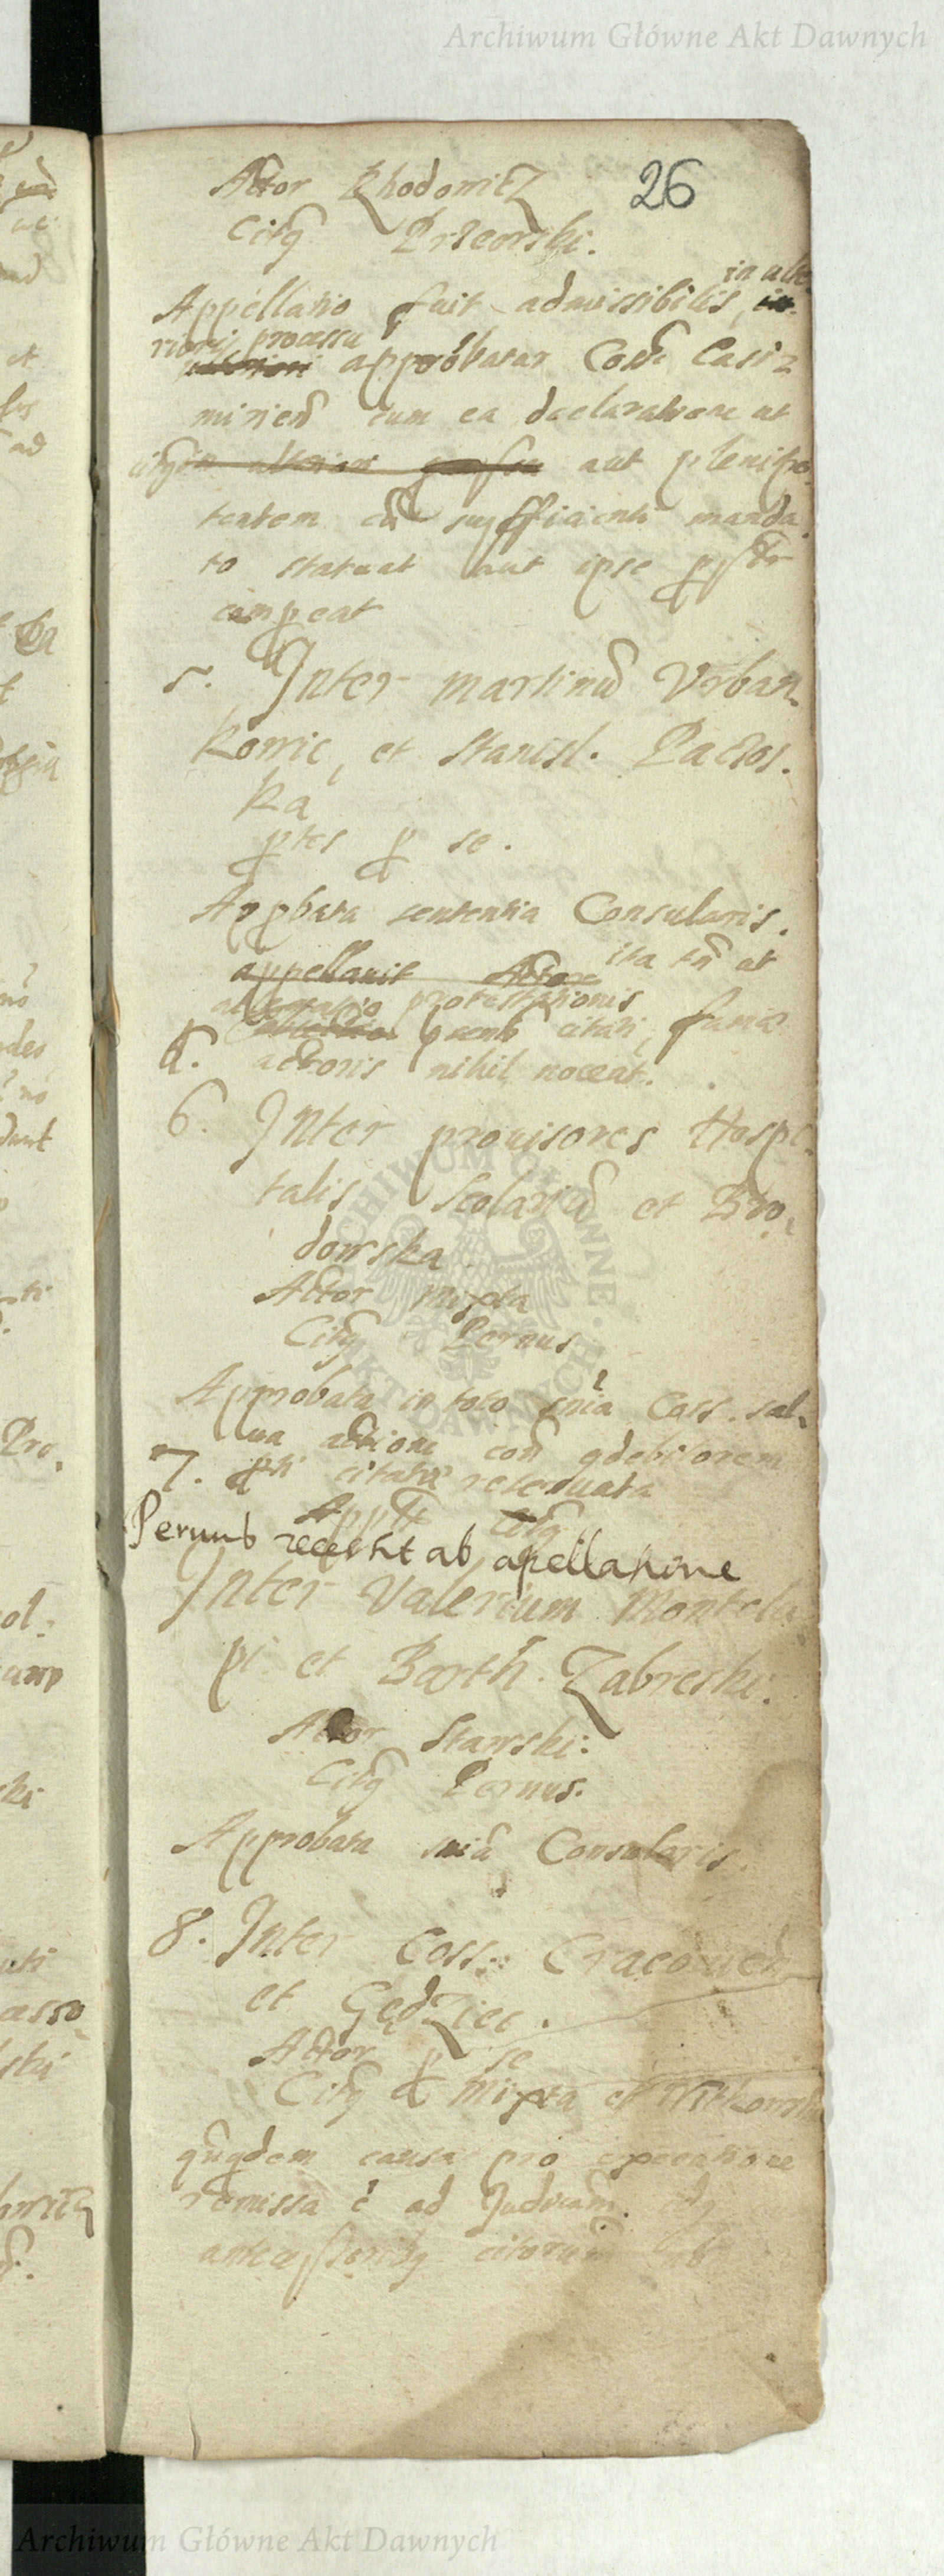 Archiwum Główne Akt Dawnych
26
Actor Rhodowicz
Citq Przeorski.
Appellatio fuit admissibilis, in ulte
riori processu approbatur Cons Casi
mirien cum ea declaratione ut
aut plenipo
tentem cu sufficienti manda
to statuat aut ipse pstr
compeat
5. Inter martinu Vrban
kowic, et Stanisl. Paczos.
ka
ptes p se.
Appbata sententia Consularis.
appellauit Actor ita tn ut
protestationis
citati, fama
d. actoris nihil noceat.
6. Inter prouisores Hospi
talis Scolariu et Bro
dowska
Actor Mixta
Citq Pernus
Approbata in toto snia Coss. sal
ua actione con qdebitorem
7. citati reseruata
Appt Citq
Pernus recessit ab apellatione
Inter Valerium Montelu
pi et Barth. Zabreski.
Actor Starski.
Citq Pernus.
Approbata snia Consularis.
8. Inter Coss. Cracouien
et Gędziec.
Actor p se
Citq Mixta et Witkowski
causa pro executione
remissa e ad Judicium
citorum
Archiwum Główne Akt Dawnych